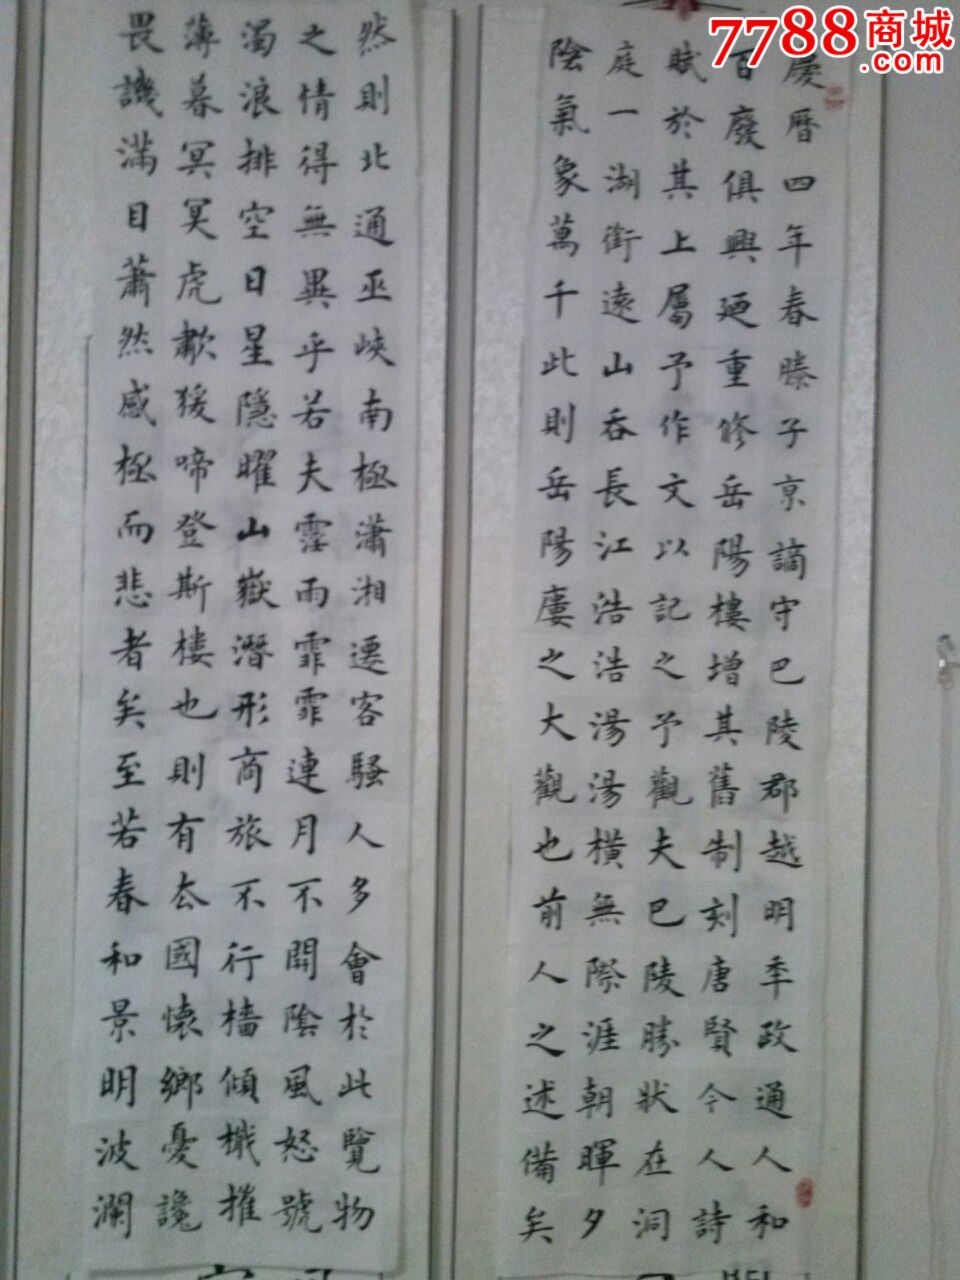 7788商城
.com
慶曆四年春滕子京謫守巴陵郡越明季政通人和
百廢俱興廼重修岳陽樓增其舊制刻唐賢今人詩
賦於其上屬予作文以記之予觀夫巴陵勝狀在洞
庭一湖銜遠山吞長江浩浩湯湯橫無際涯朝暉夕
陰氣象萬千此則岳陽廔之大觀也前人之述備矣
然則北通巫峽南極瀟湘遷客騷人多會於此覽物
之情得無異乎若夫霪雨霏霏連月不開陰風怒號
濁浪排空日星隱曜山嶽潛形商旅不行檣傾檝摧
薄暮冥冥虎歗猨啼登斯樓也則有厺國懷鄉憂讒
畏譏滿目蕭然感極而悲者矣至若春和景明波瀾